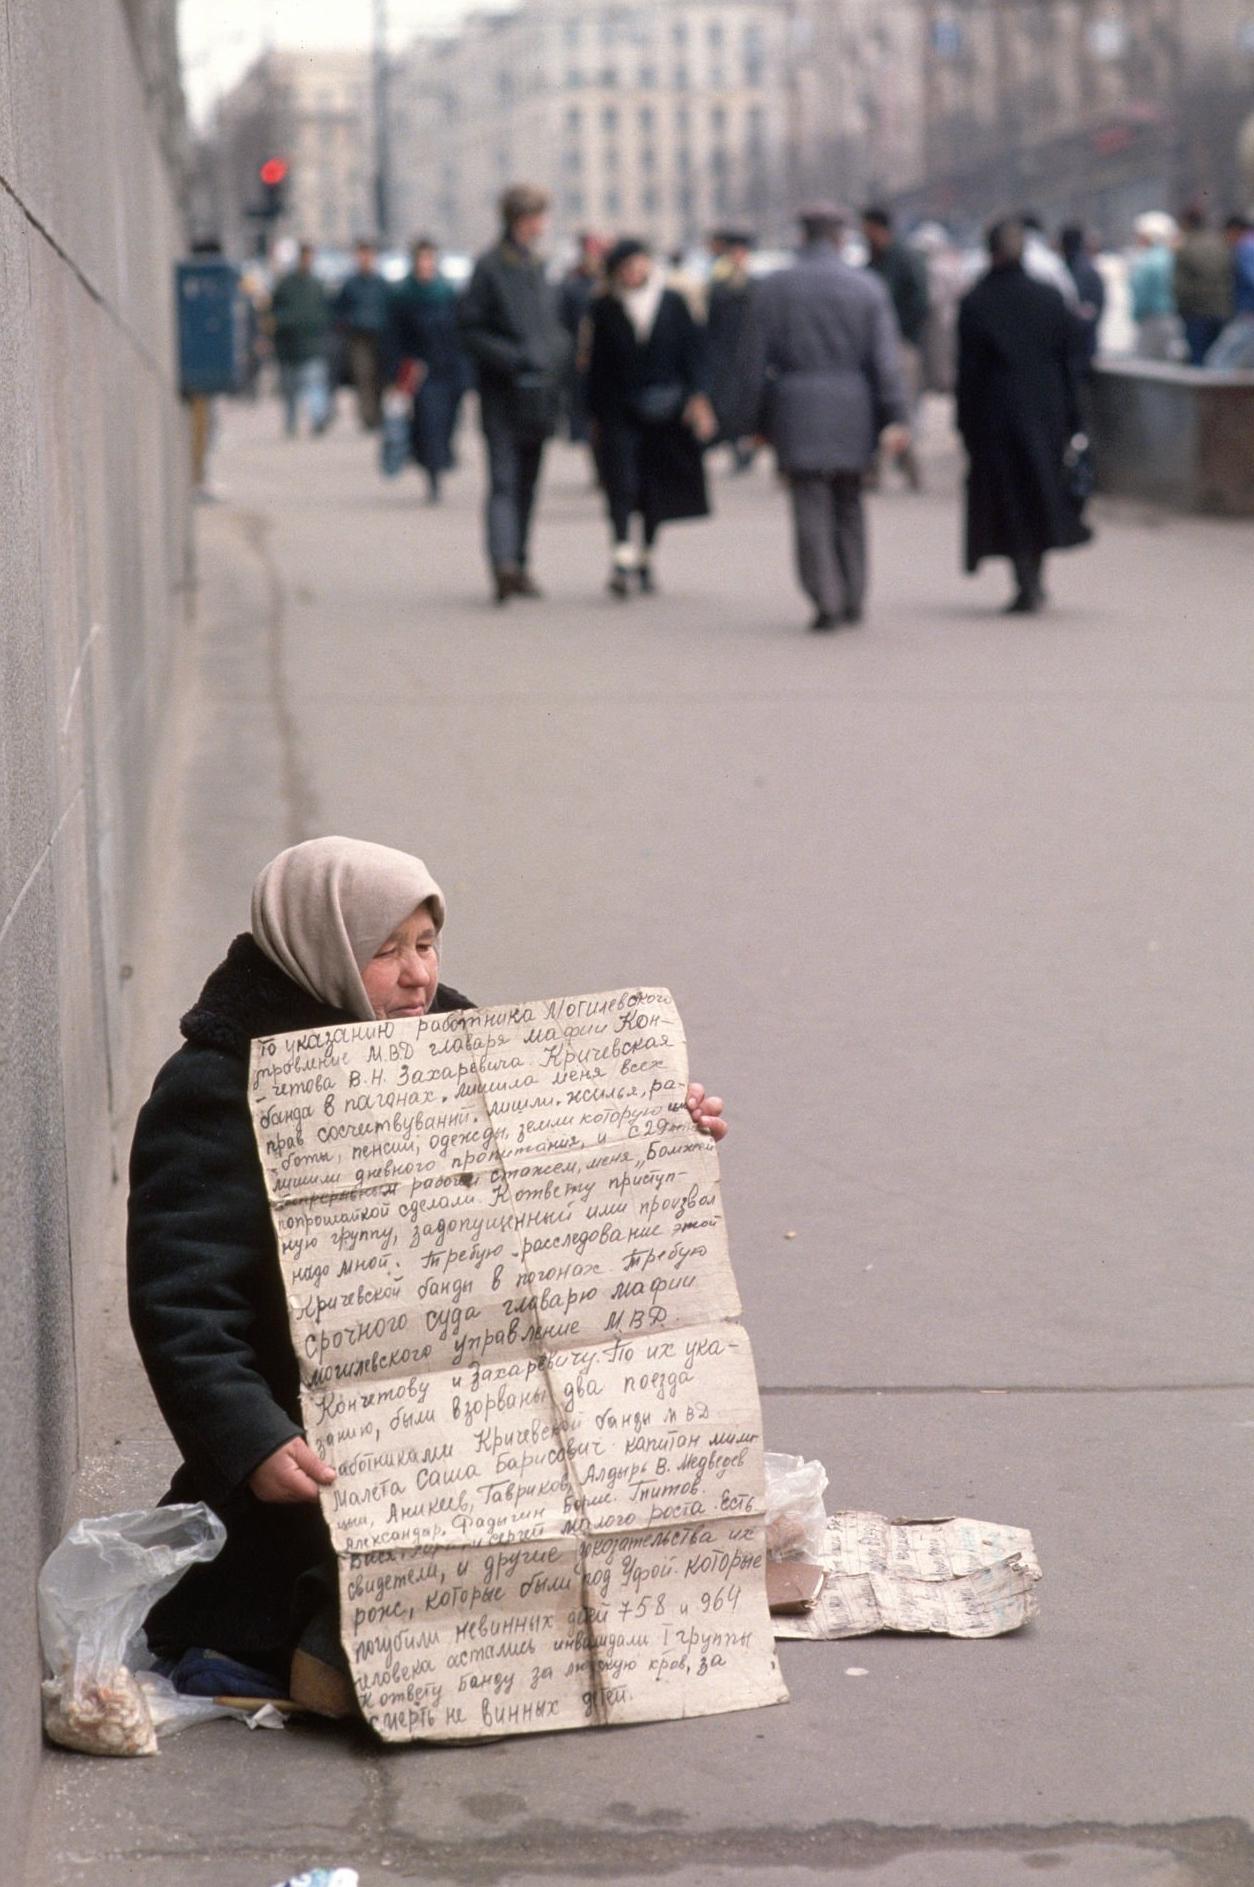 По указанию работника Могилевского
управление М.ВД главаря мафии Кон-
-четова В.Н. Захаревича. Кричевская
банда в пагонах. лишила меня всех
прав сосчитвуваний. лишли. жилья, ра-
-боты, пенсии, одежды, земли которую
лишили дневного пропитания, и с 29
беспрерывным рабочи стажем, меня „Бомжей
попрошайкой сделали. К ответу приступ-
ную группу, задопущенный ими произвол
надо мной. Требую расследование этой
Кричевской банды в погонах. Требую
срочного суда главарю мафии
могилевского управление МВД.
Кончетову и Захаревичу. По их ука-
занию, были взорваны два поезда
работниками Кричевской банды МВД
Малета Саша Барисович капитан мили-
ции, Аникеев, Гавриков, Алдырь В. Медведев
Александар. Фадыгин Борис. Гпитов.
Вася, и сергей малого роста. Есть
свидетели, и другие доказательства их
рож, которые были под Уфой. которые
погубили невинных детей 758 и 964
человека астались инвалидами I группы
К ответу банду за людскую кров, за
смерть не винных детей.